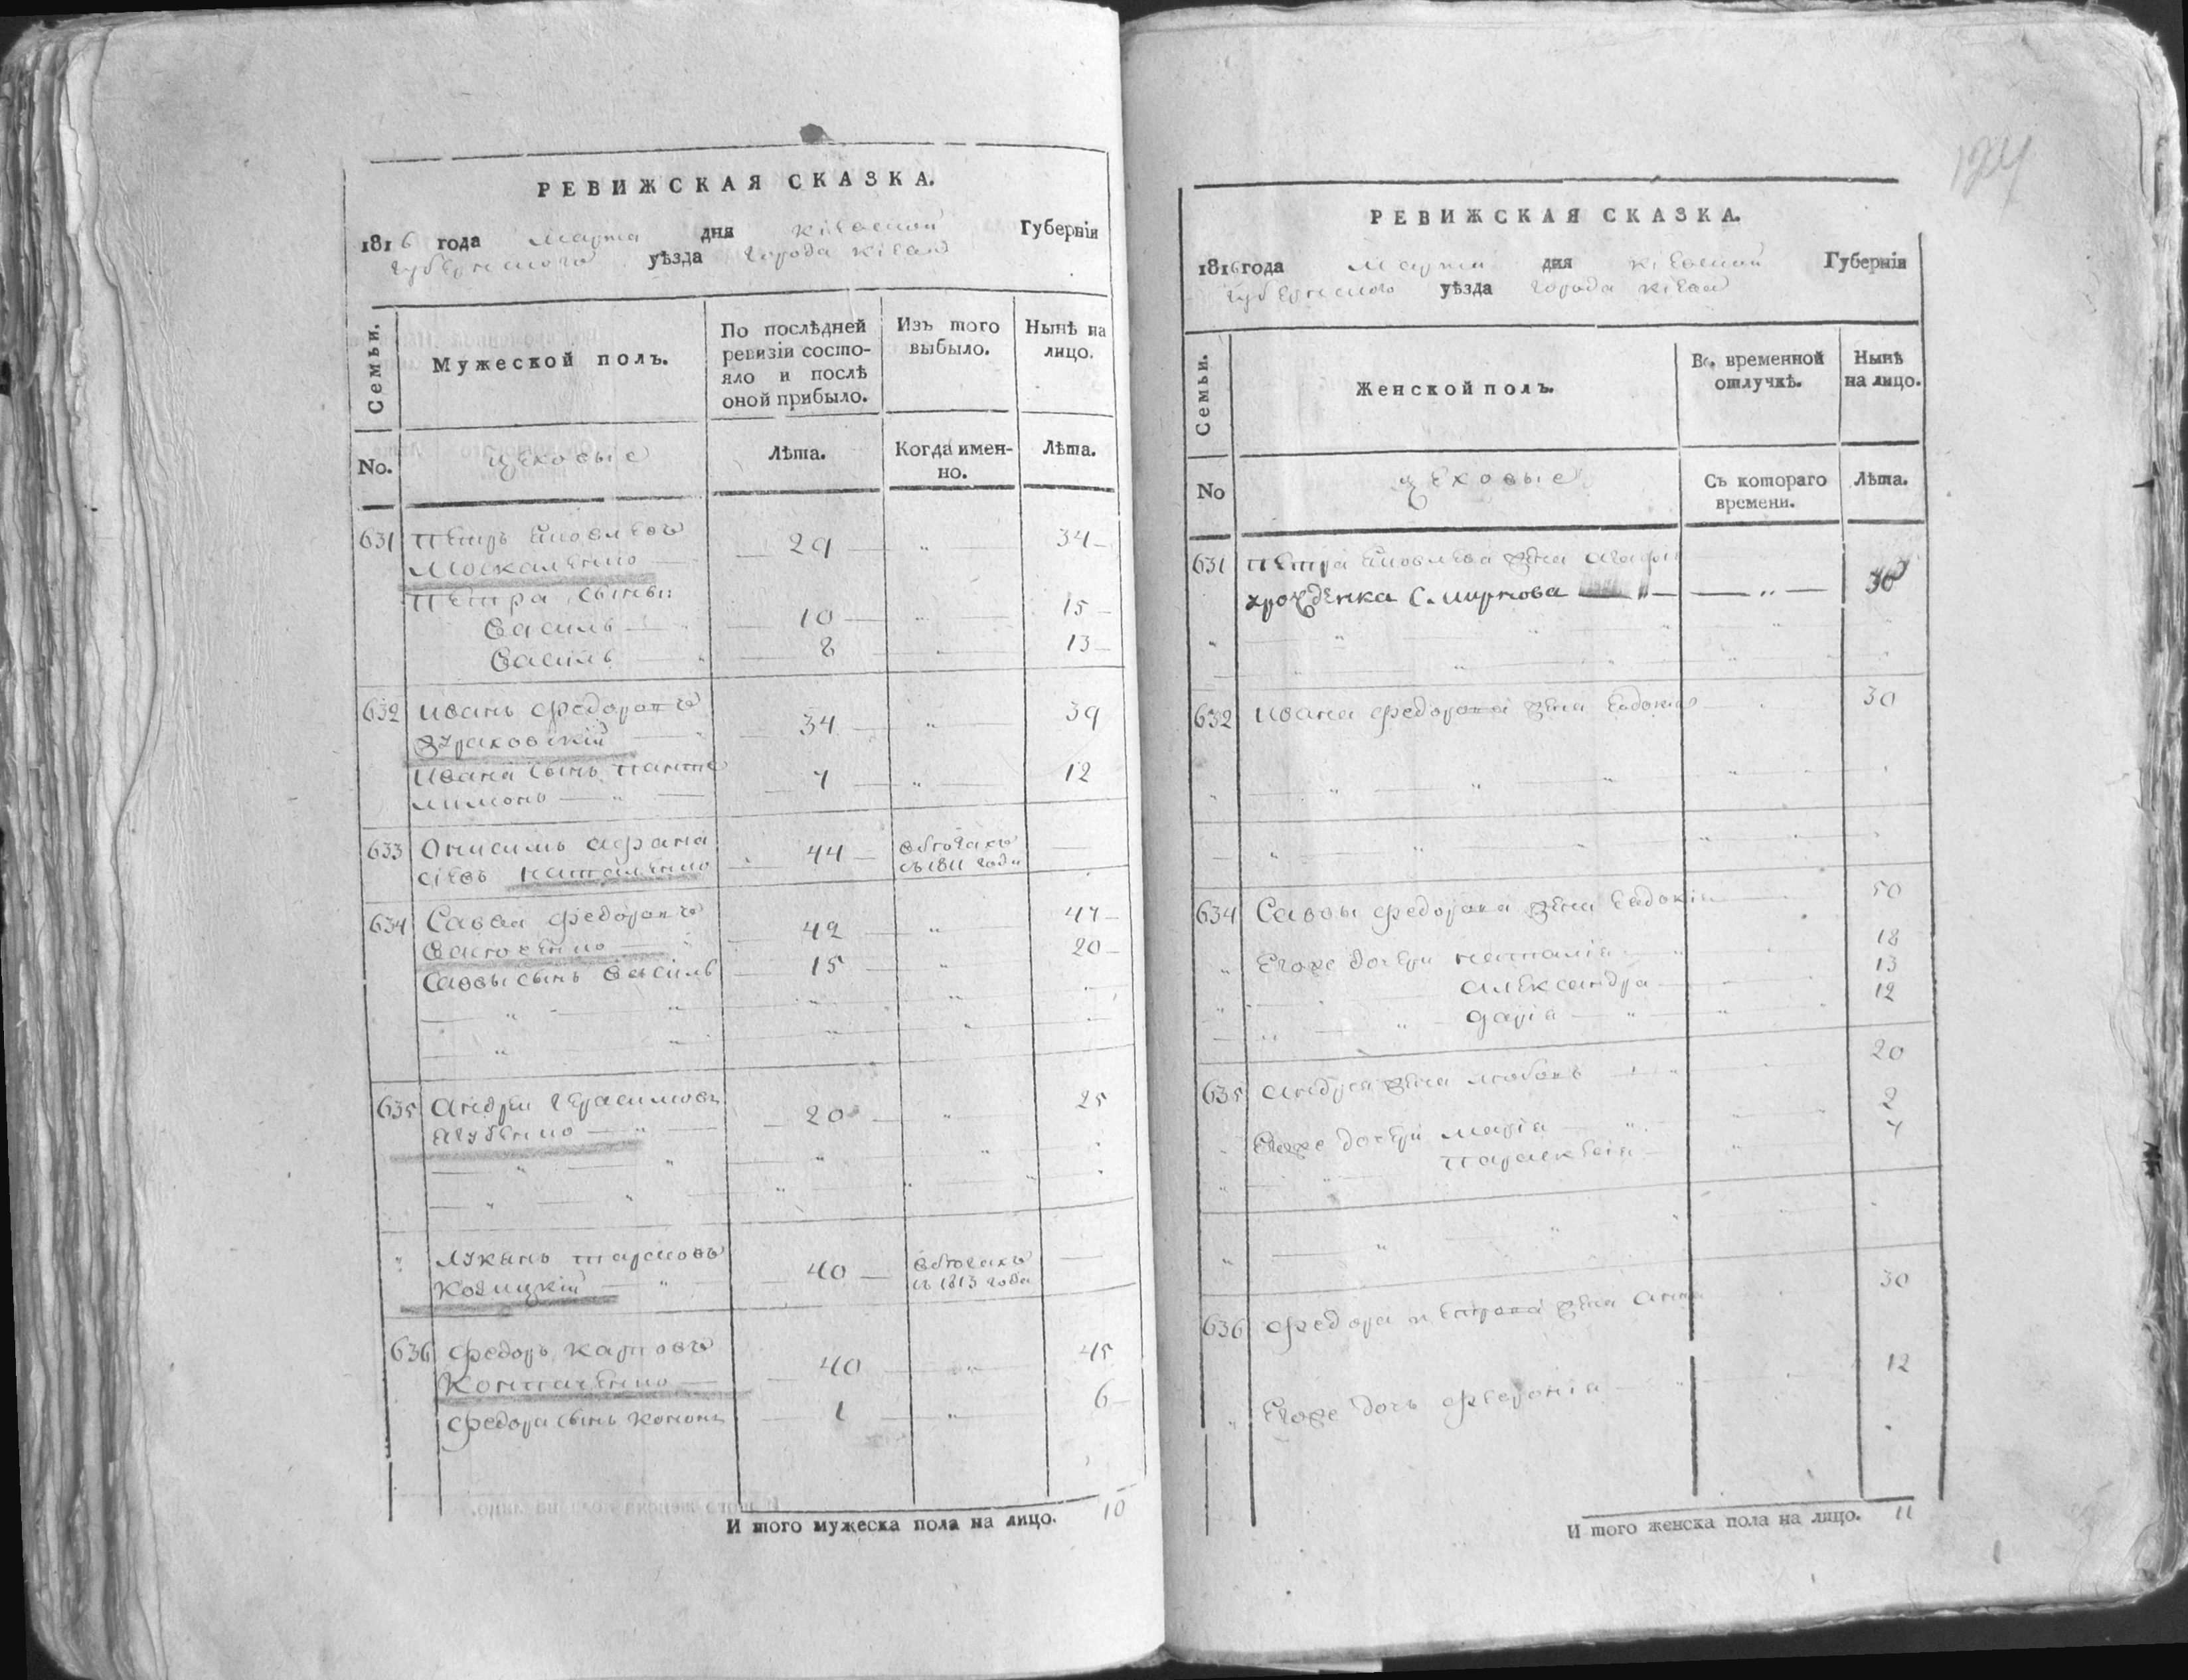 РЕВИЖСКАЯ СКАЗКА.
1816 года Марта дня Кіевской Губерніи
Губернского уѣзда города Кіева
Семьи. Мужеской полъ. По послѣдней ревизіи состояло и послѣ оной прибыло. Изъ того выбыло. Нынѣ на лицо.
No. цеховые Лѣта. Когда именно. Лѣта.
631 Петръ Яковлевъ 29 „ 34
Москаленко
Петра сыны
Василь 10 „ 15
Василь 8 „ 13
632 Иванъ Федоровъ 34 „ 39
Жураховскій
Ивана сынъ Панте 7 „ 12
лимонъ
633 Онисимъ Афана 44 въ бѣгахъ
сіевъ съ 1811 года
634 Савва Федоровъ 42 „ 47
Саввы сынъ Василь 15 „ 20
635 Андрей Герасимовъ 20 „ 25
Якубенко
„ Лукьянъ Тарасовъ 40 въ бѣгахъ
Козицкій съ 1813 года
636 Федоръ Карповъ 40 „ 45
Федора сынъ Кононъ 1 „ 6
И того мужеска пола на лицо. 10
124
РЕВИЖСКАЯ СКАЗКА.
1816 года Марта дня Кіевской Губерніи
Губернского уѣзда города Кіева
Семьи. Женской полъ. Во временной отлучкѣ. Нынѣ на лицо.
No цеховые Съ котораго времени. Лѣта.
631 Петра Яковлева жена Агафія
урожденка Смирнова „ 30
632 Ивана Федорова жена Евдокія „ 30
634 Саввы Федорова жена Евдокія 50
„ Егоже дочери Наталія 18
„ Александра 13
Дарія 12
635 Андрея жена Любовь 20
Егоже дочери Марія 2
„ Параскевія 7
636 Федора Петрова жена Анна 30
„ Егоже дочь Феѵронія 12
И того женска пола на лицо. 11